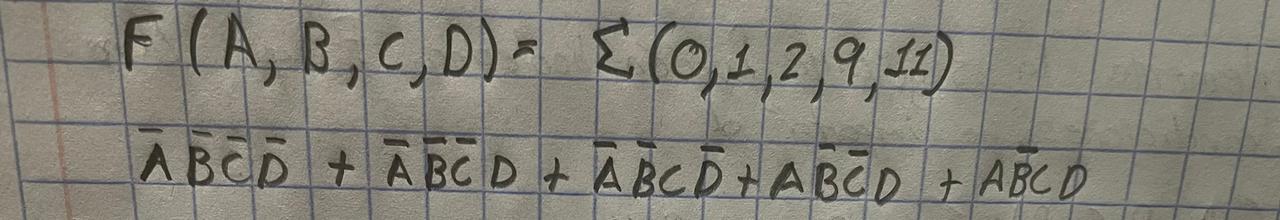 F (A, B, C, D) = Σ(0, 1, 2, 9, 11)
A̅ B̅ C̅ D̅ + A̅ B̅ C̅ D + A̅ B̅ C D̅ + A B̅ C̅ D + A B̅ C D